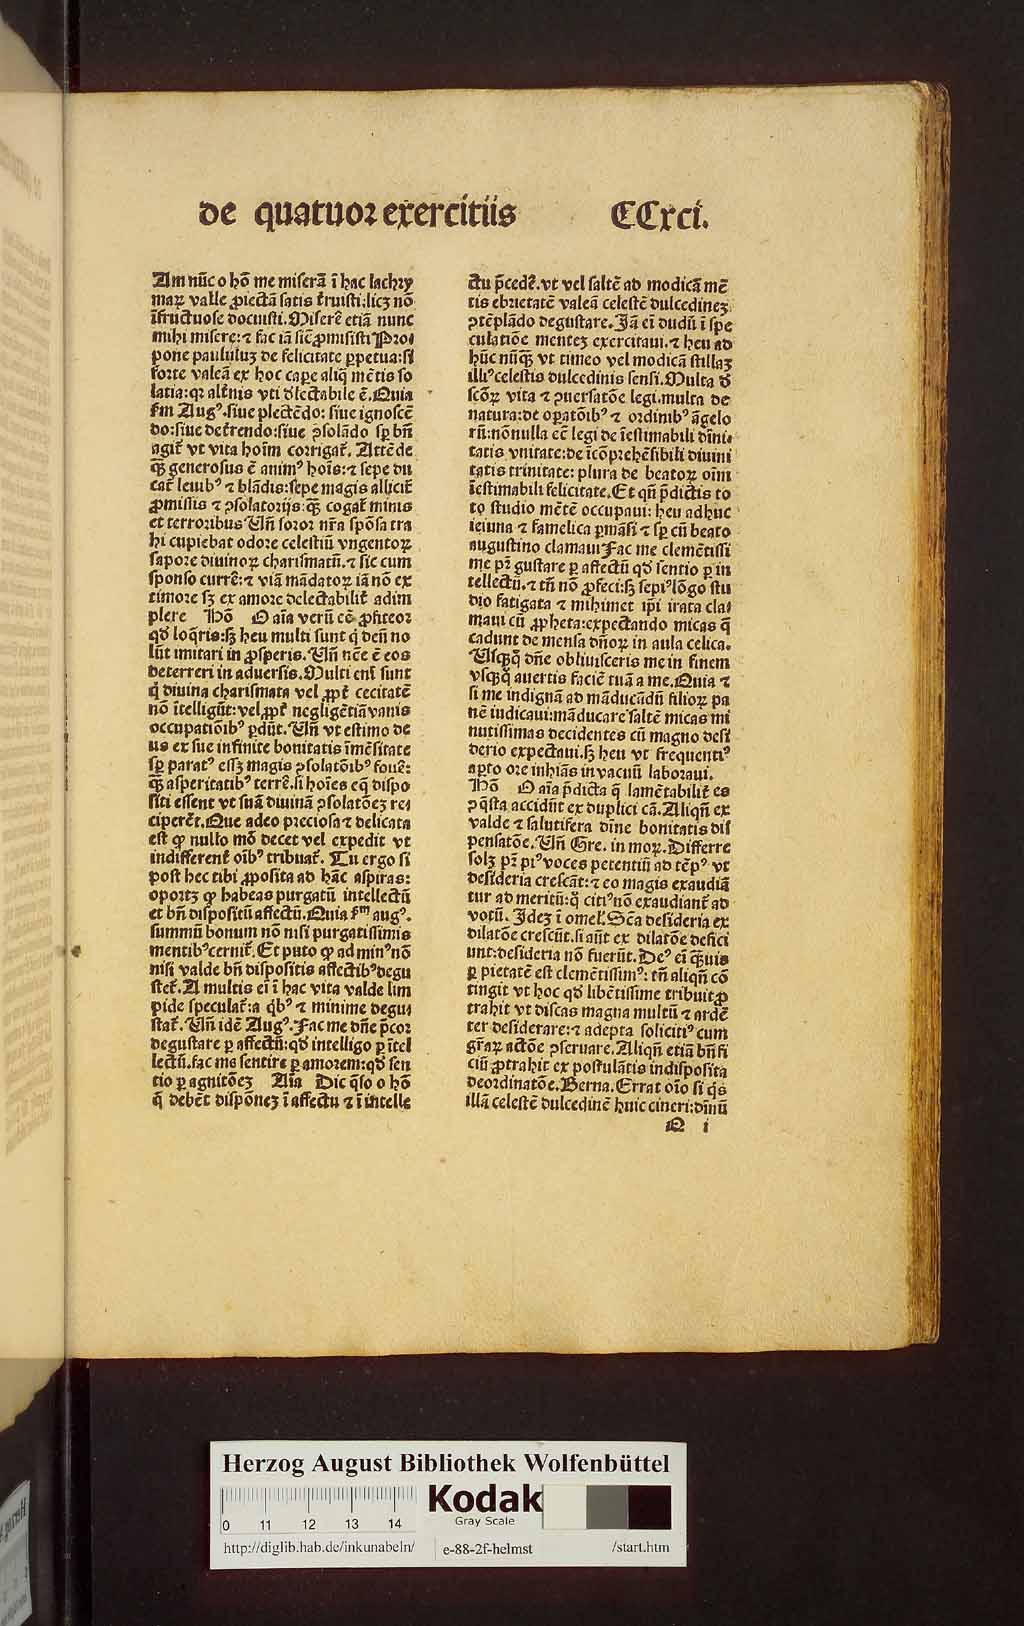 de quatuor exercitiis CCxci.
Am nūc o hō me miserā ī hac lachry
maꝝ valle ꝓiectā satis t̄ruisti:licꝫ nō
īfructuose docuisti. Miserē etiā nunc
mihi misere:⁊ fac iā sic̄ ꝓmisisti Pro⸗
pone paululuꝫ de felicitate ꝑpetua:si
forte valeā ex hoc caꝑe aliq̄ mētis so
latia:qꝛ alt̄nis vti d̄lectabile ē. Quia
s̄m Augꝰ. siue plectēdo: siue ignoscē
do:siue det̄rendo:siue ꝯsolādo sꝑ bn̄
agit̄ vt vita hoīm corrigat̄. Attēde
qꝫ̄ generosus ē animꝰ hoīs:⁊ sepe du
cat̄ leuibꝰ ⁊ blādis:sepe magis allicit̄
ꝓmissis ⁊ ꝯsolatorijs:qꝫ̄ cogat̄ minis
et terroribus Vn̄ soror nr̄a spōsa tra
hi cupiebat odore celestiū vngentoꝝ
sapore diuinoꝝ charismatū. ⁊ sic cum
sponso currē:⁊ viā mādatoꝝ iā nō ex
timore sꝫ ex amore delectabilit̄ adim
plere Hō O aīa verū cē ꝓfiteor
qd̄ loq̄ris:sꝫ heu multi sunt q̄ den̄ no
lūt imitari in ꝓsperis. Vn̄ nc̄e ē eos
deterreri in aduersis. Multi eni̅ sunt
q̄ diuina charismata vel ꝓpt̄ cecitatē
nō ītelligūt:vel ꝓpt̄ negligētiā vanis
occupatiōibꝰ ꝑdūt. Vn̄ vt estimo de
us ex sue infinite bonitatis īmēsitate
sꝑ paratꝰ essꝫ magis ꝯsolatōibꝰ fouē:
qꝫ̄ asperitatibꝰ terrē. si hoīes eq̄ dispo
siti essent vt suā diuinā ꝯsolatōeꝫ re⸗
ciperēt. Que adeo preciosa ⁊ delicata
est ꝙ nullo mō decet vel expedit vt
indifferent̄ oībꝰ tribuat̄. Tu ergo si
post hec tibi ꝓposita ad hāc aspiras:
oportꝫ ꝙ habeas purgatū intellectū
et bn̄ dispositū affectū. Quia s̄m augꝰ.
summū bonum nō nisi purgatissimis
mentibꝰ cernit̄. Et puto ꝙ ad minꝰ nō
nisi valde bn̄ dispositis affectibꝰ degu
stet̄. A multis ei̅ ī hac vita valde lim
pide speculat̄:a q̄bꝰ ⁊ minime degu⸗
stat̄. Vn̄ idē Augꝰ. Fac me dn̄e p̄cor
degustare ꝑ affectū:qd̄ intelligo ꝑ ītel
lectū. fac me sentire ꝑ amorem:qd̄ sen
tio ꝑ agnitōeꝫ Aīa Dic q̄so o hō
q̄ debēt dispōneꝫ ī affectu ⁊ ī intelle
ctu p̄cedē. vt vel saltē ad modicā mē
tis ebrietatē valeā celestē dulcedineꝫ
ꝯtēplādo degustare. Jā ei̅ dudū ī spe
culatiōe menteꝫ exercitaui. ⁊ heu ad
hūc nūqꝫ̄ vt timeo vel modicā stillaꝫ
illiꝰ celestis dulcedinis sensi. Multa d̄
sc̄oꝝ vita ⁊ ꝯuersatōe legi. multa de
natura:de oꝑatōibꝰ ⁊ ordinibꝰ āgelo
rū:nōnulla eē legi de īestimabili diīni⸗
tatis vnitate:de īcōprehēsibili diuini
tatis trinitate: plura de beatoꝝ oīm
īestimabili felicitate. Et qn̄ p̄dictis to
to studio mētē occupaui: heu adhuc
ieiuna ⁊ famelica ꝑmāsi ⁊ sꝑ cū beato
augustino clamaui Fac me clemētissi
me pr̄ gustare ꝑ affectū qd̄ sentio ꝑ in
tellectū. ⁊ tn̄ nō ꝓfeci:sꝫ sepiꝰ lōgo stu
dio fatigata ⁊ mihimet ip̄i irata cla⸗
maui cū ꝓpheta:expectando micas q̄
cadunt de mensa dn̄oꝝ in aula celica.
Vsqꝫq̄ dn̄e obliuisceris me in finem
vsqꝫq̄ auertis faciē tuā a me. Quia ⁊
si me indignā ad māducādū filioꝝ pa
nē iudicaui:māducare saltē micas mi
nutissimas decidentes cū magno desi
derio expectaui. sꝫ heu vt frequentiꝰ
aꝑto ore inhiās in vacuū laboraui.
Hō O aīa p̄dicta q̄ lamētabilit̄ es
ꝯq̄sta accidūt ex duplici cā. Aliqn̄ ex
valde ⁊ salutifera diīne bonitatis dis
pensatōe. Vn̄ Gre. in moꝝ. Differre
solꝫ pr̄ piꝰ voces petentiū ad tēpꝰ vt
desideria crescāt:⁊ eo magis exaudiā
tur ad meritū:q̄ citiꝰ nō exaudiant̄ ad
votū. Jdeꝫ ī omel̄. Sc̄a desideria ex
dilatōe crescūt. si aūt ex dilatōe defici
unt:desideria nō fuerūt. Deꝰ ei̅ qꝫ̄uis
ꝑ pietatē est clemētissimꝰ: tn̄ aliqn̄ cō
tingit vt hoc qd̄ libētissime tribuit ꝓ
trahit vt discas magna multū ⁊ ardē
ter desiderare:⁊ adepta solicitiꝰ cum
gr̄aꝝ actōe ꝯseruare. Aliqn̄ etiā bn̄fi
ciū ꝓtrahit ex postulātis indisposita
deordinatōe. Berna. Errat oīo si q̄s
illā celestē dulcedinē huic cineri:diīnū
Q i
Herzog August Bibliothek Wolfenbüttel
0 11 12 13 14
Kodak
Gray Scale
http://diglib.hab.de/inkunabeln/ e-88-2f-helmst /start.htm